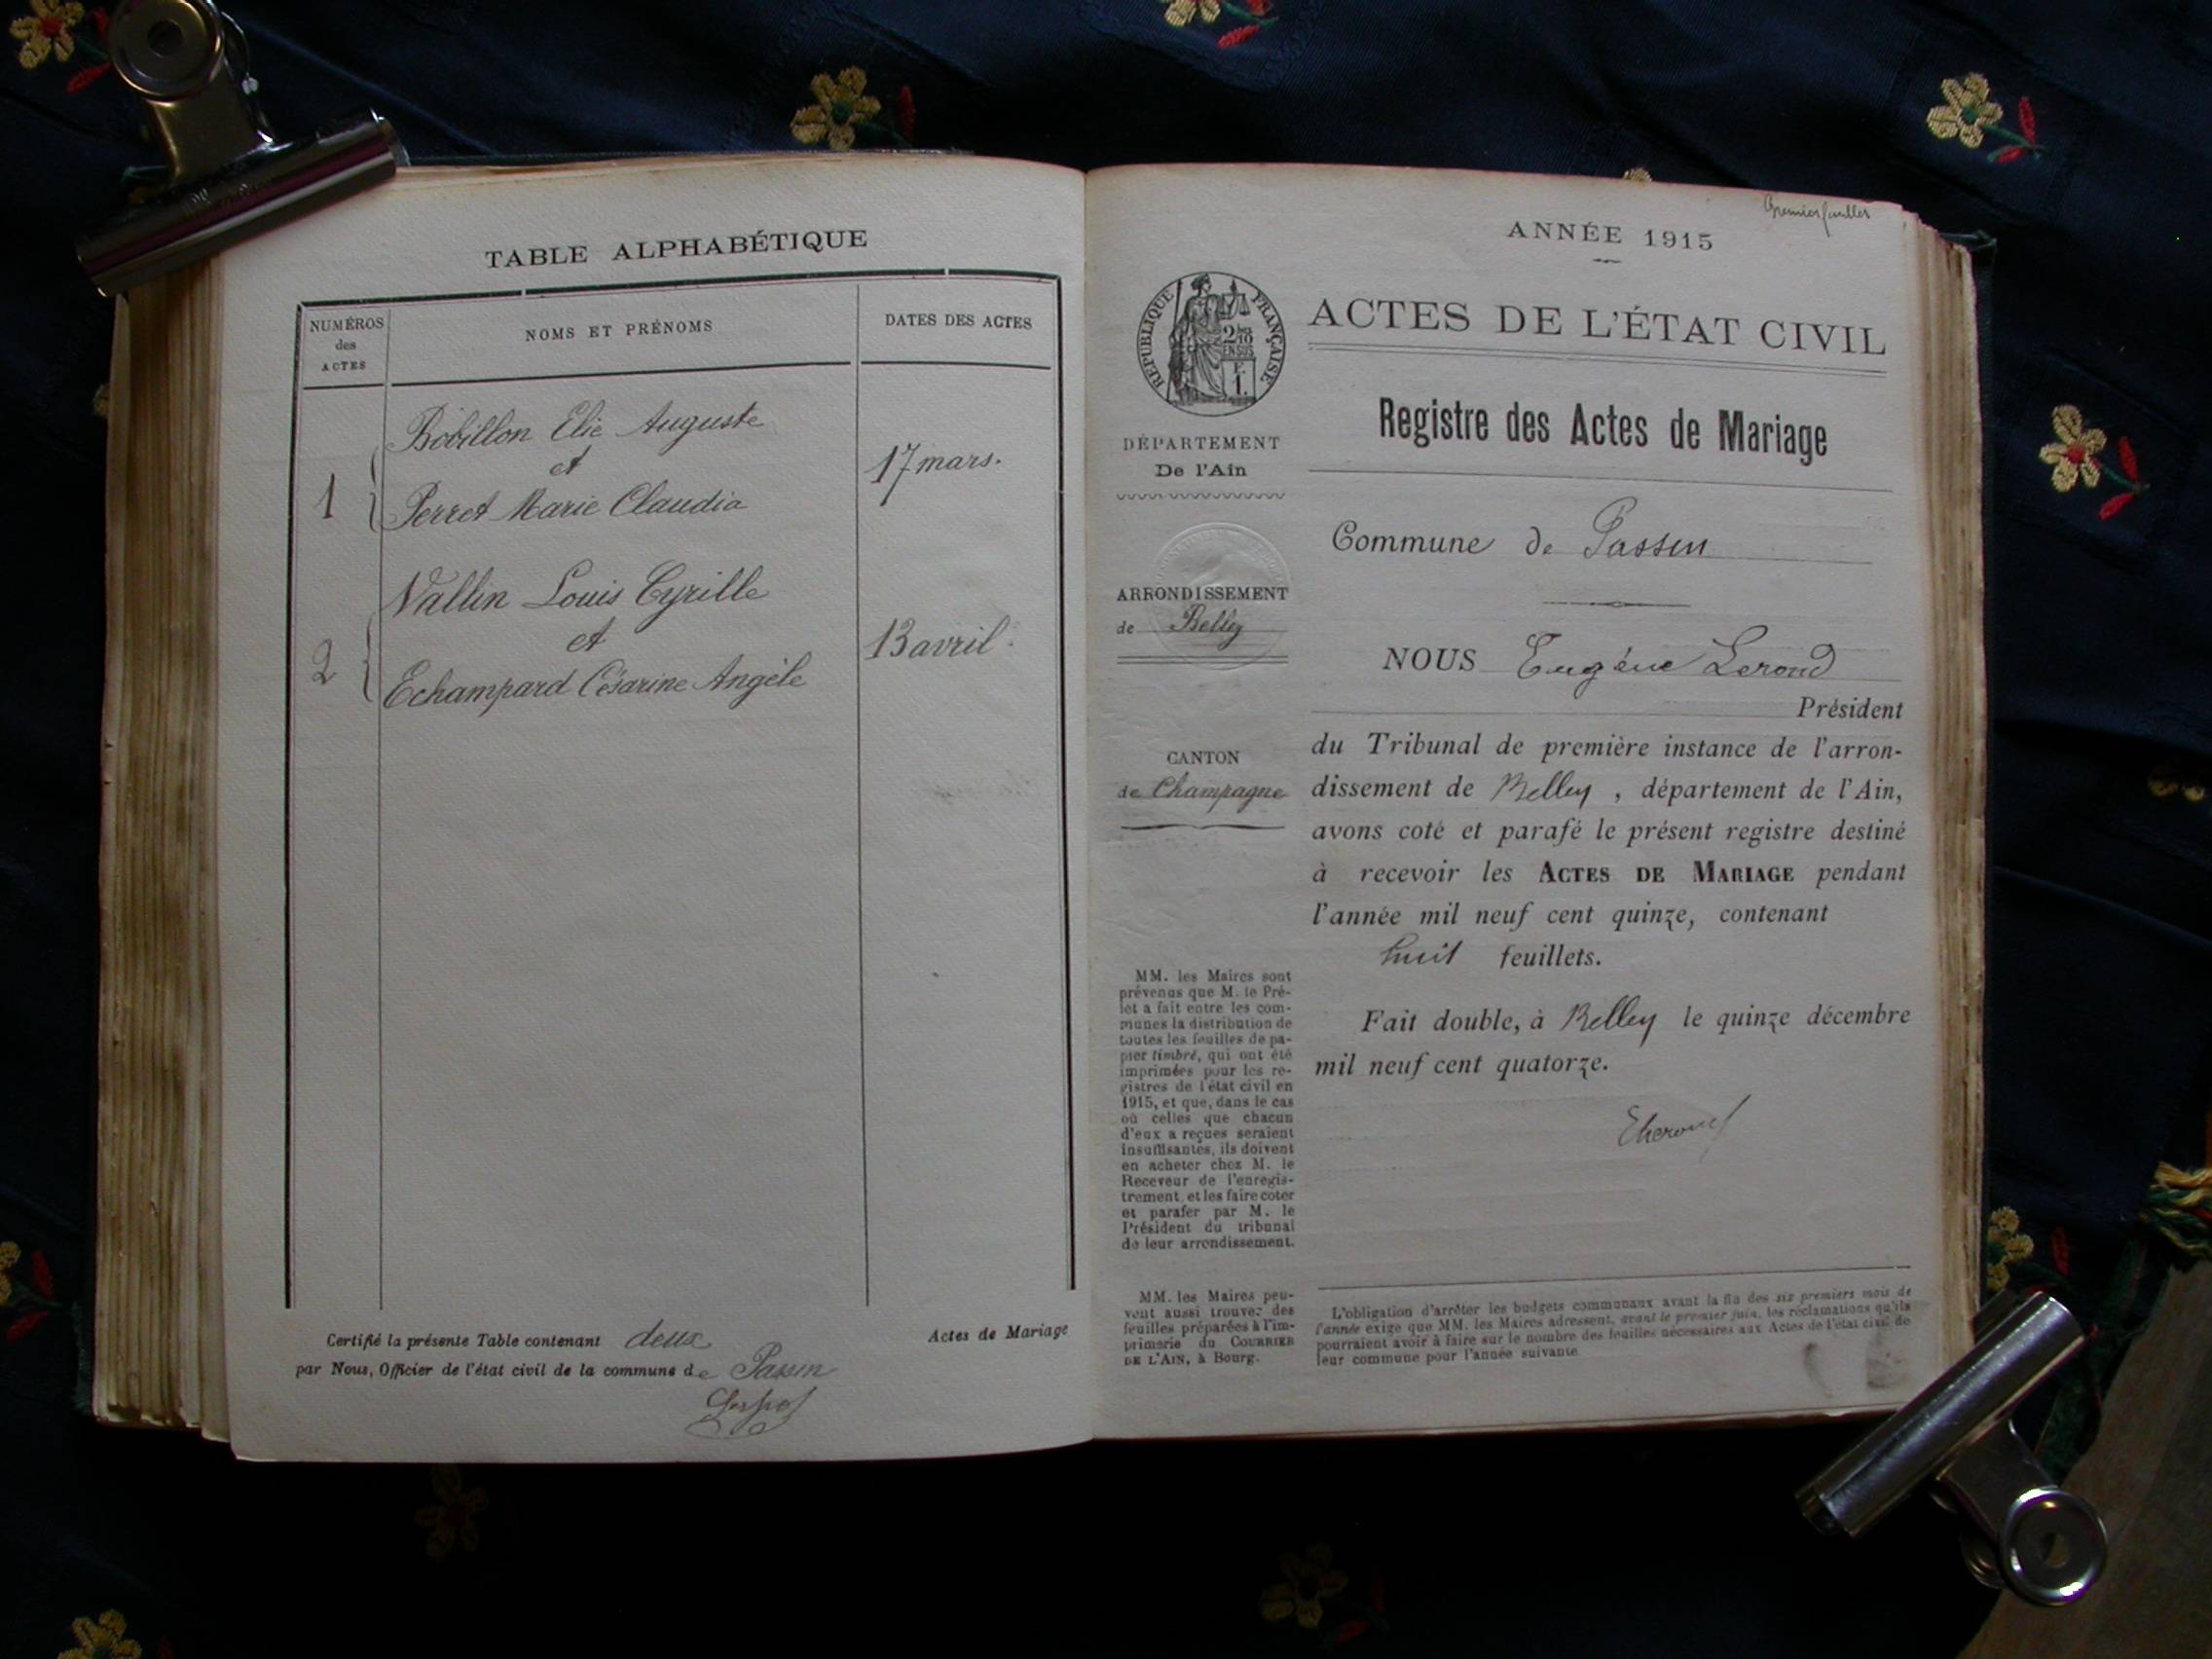 TABLE ALPHABÉTIQUE
NUMÉROS
des
ACTES
NOMS ET PRÉNOMS
DATES DES ACTES
Bobillon Elie Auguste
et
1
17 mars.
Perret Marie Claudia
Vallin Louis Cyrille
et
2
13 avril.
Echampard Césarine Angèle
Certifié la présente Table contenant deux Actes de Mariage
par Nous, Officier de l'état civil de la commune de Passin
Premier feuillet
ANNÉE 1915
RÉPUBLIQUE FRANÇAISE
ACTES DE L'ÉTAT CIVIL
Registre des Actes de Mariage
DÉPARTEMENT
De l'Ain
Commune de Passin
ARRONDISSEMENT
de Belley
NOUS Eugène Lerond
Président
CANTON
de Champagne
du Tribunal de première instance de l'arron-
dissement de Belley , département de l'Ain,
avons coté et parafé le présent registre destiné
à recevoir les ACTES DE MARIAGE pendant
l'année mil neuf cent quinze, contenant
huit feuillets.
Fait double, à Belley le quinze décembre
mil neuf cent quatorze.
MM. les Maires sont
prévenus que M. le Pré-
fet a fait entre les com-
munes la distribution de
toutes les feuilles de pa-
pier timbré, qui ont été
imprimées pour les re-
gistres de l'état civil en
1915, et que, dans le cas
où celles que chacun
d'eux a reçues seraient
insuffisantes, ils doivent
en acheter chez M. le
Receveur de l'enregis-
trement, et les faire coter
et parafer par M. le
Président du tribunal
de leur arrondissement.
MM. les Maires peu-
vent aussi trouver des
feuilles préparées à l'im-
primerie du COURRIER
DE L'AIN, à Bourg.
L'obligation d'arrêter les budgets communaux avant la fin des six premiers mois de
l'année exige que MM. les Maires adressent, avant le premier juin, les réclamations qu'ils
pourraient avoir à faire sur le nombre des feuilles nécessaires aux Actes de l'état civil de
leur commune pour l'année suivante